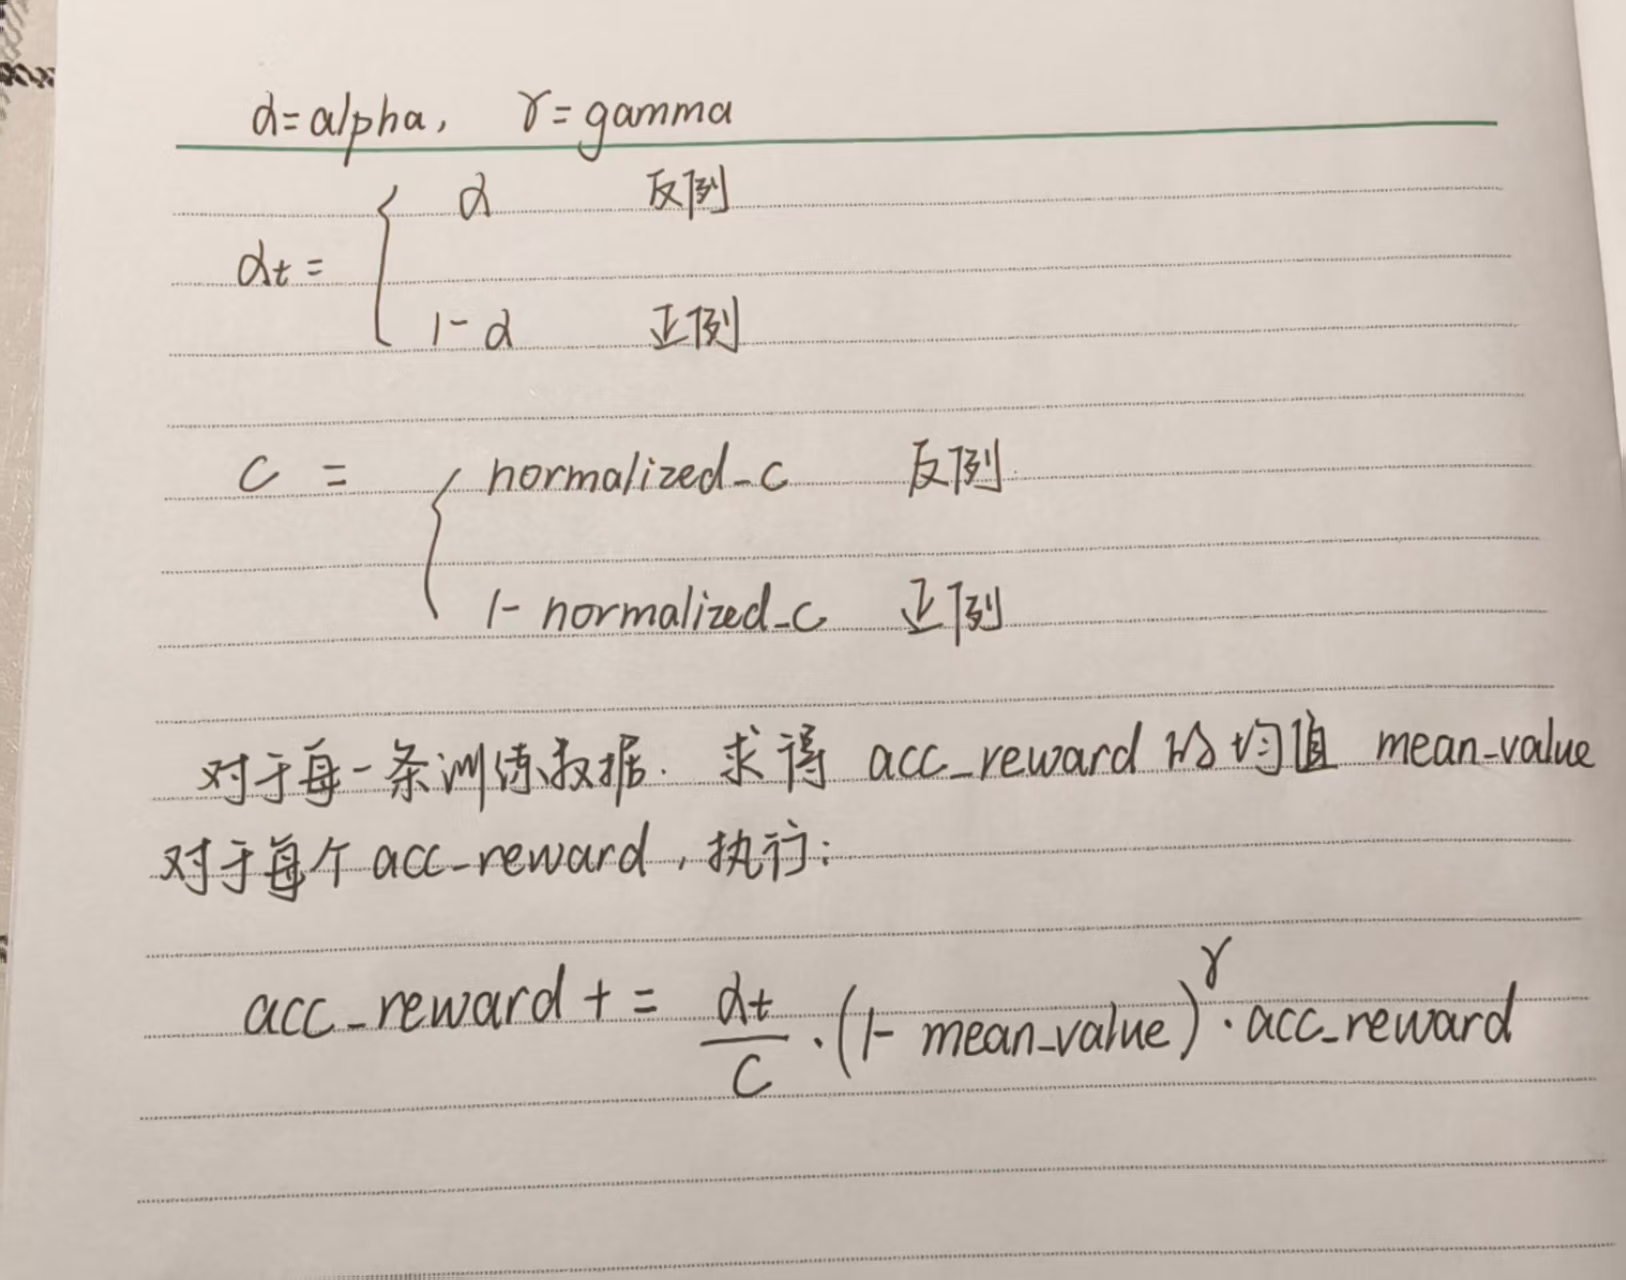 α=alpha, γ=gamma
αt= { α 反例
1-α 正例
C = { normalized_c 反例
1- normalized_c 正例
对于每一条训练数据. 求得 acc_reward 的均值 mean_value
对于每个 acc_reward, 执行:
acc_reward += αt/C · (1- mean_value)^γ · acc_reward